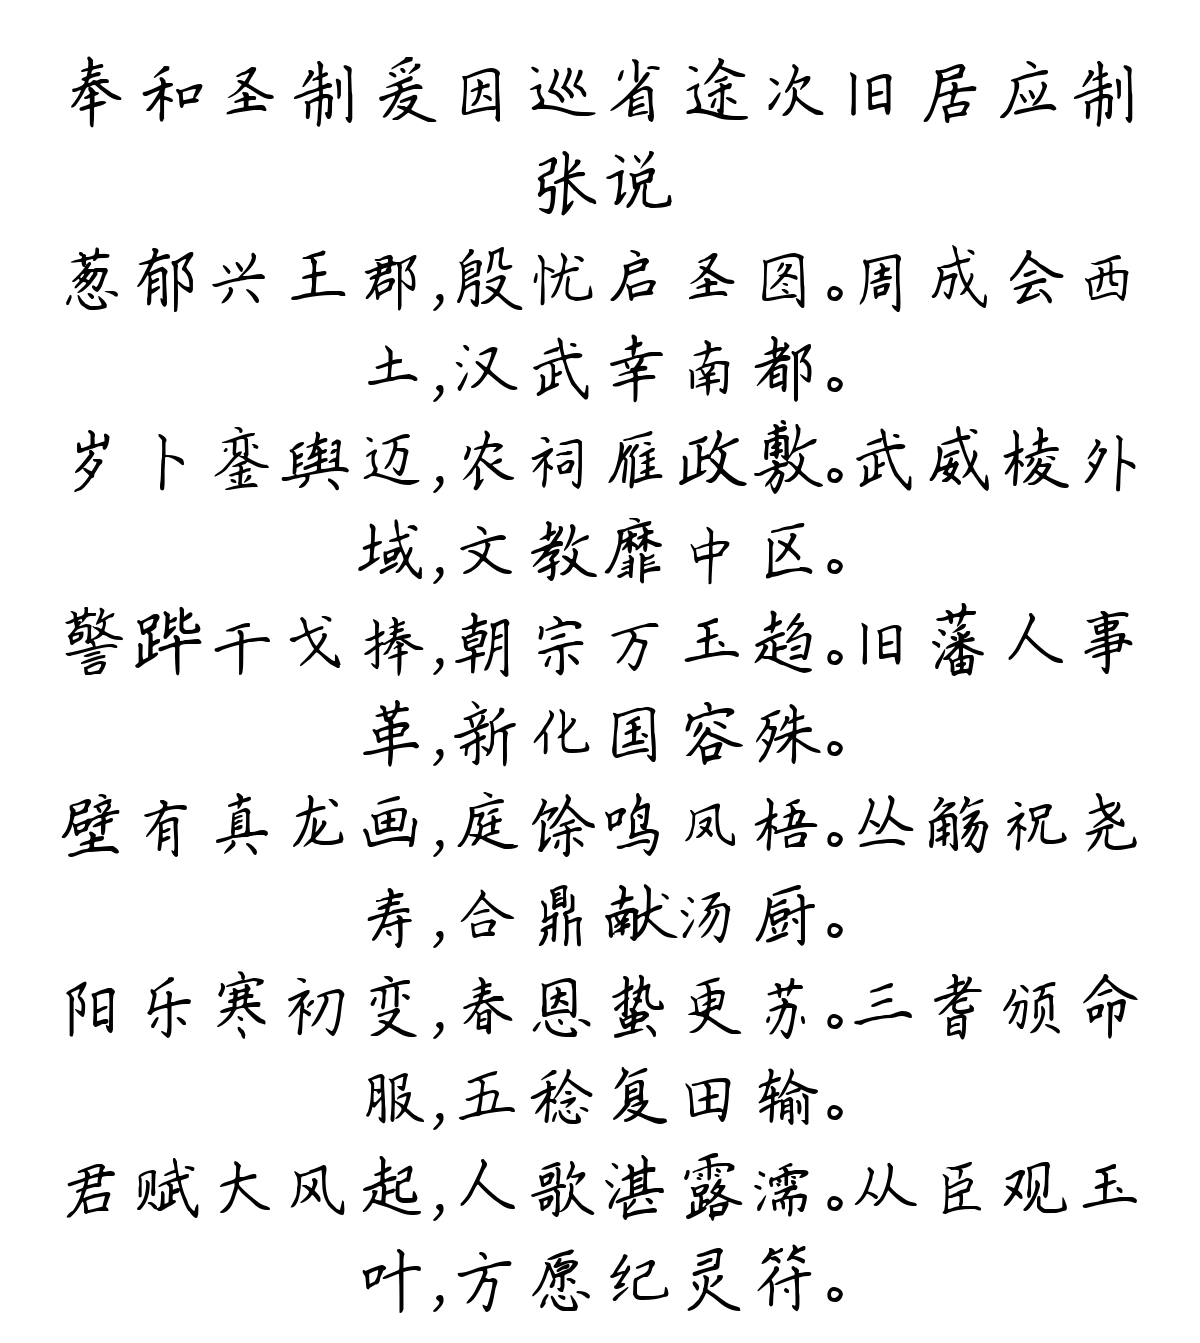 奉和圣制爰因巡省途次旧居应制
张说
葱郁兴王郡,殷忧启圣图。周成会西
土,汉武幸南都。
岁卜銮舆迈,农祠雁政敷。武威棱外
域,文教靡中区。
警跸干戈捧,朝宗万玉趋。旧藩人事
革,新化国容殊。
壁有真龙画,庭馀鸣凤梧。丛觞祝尧
寿,合鼎献汤厨。
阳乐寒初变,春恩蛰更苏。三耆颁命
服,五稔复田输。
君赋大风起,人歌湛露濡。从臣观玉
叶,方愿纪灵符。